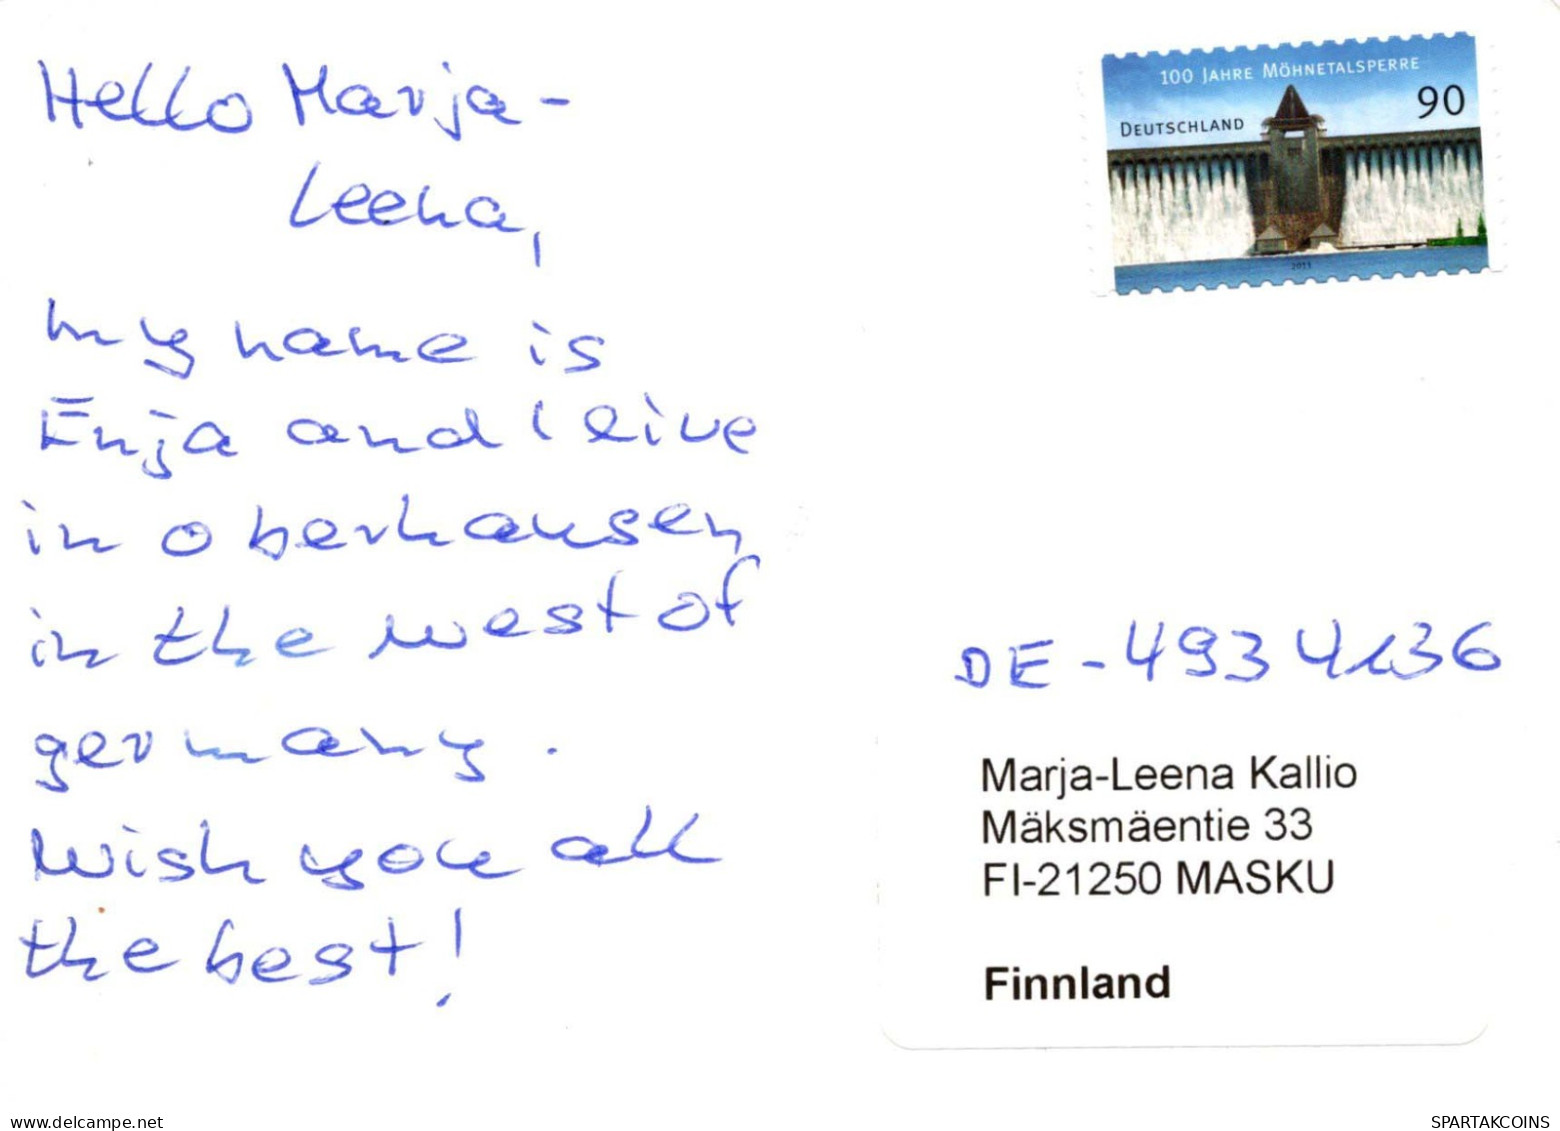 Hello Marja-
Leena,
my name is
Enja and I live
in Oberhausen
in the west of
germany.
Wish you all
the best!
100 JAHRE MÖHNETALSPERRE
90
DEUTSCHLAND
2013
DE-4934136
Marja-Leena Kallio
Mäksmäentie 33
FI-21250 MASKU
Finnland
www.delcampe.net
SPARTAKCOINS